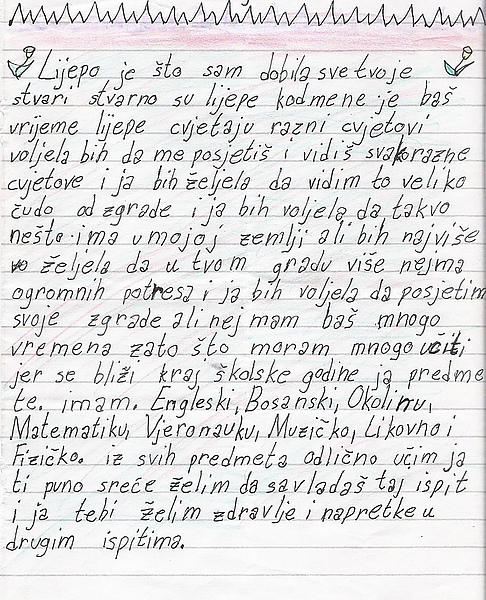 Lijepo je što sam dobila sve tvoje
stvari stvarno su lijepe kod mene je baš
vrijeme lijepe cvjetaju razni cvjetovi
voljela bih da me posjetiš i vidiš svakorazne
cvjetove i ja bih željela da vidim to veliko
čudo od zgrade i ja bih voljela da takvo
nešto ima u mojoj zemlji ali bih najviše
željela da u tvom gradu više nejma
ogromnih potresa i ja bih voljela da posjetim
svoje zgrade ali nejmam baš mnogo
vremena zato što moram mnogo učiti
jer se bliži kraj školske godine ja predme
te. imam. Engleski, Bosanski, Okolinu,
Matematiku, Vjeronauku, Muzičko, Likovno i
Fizičko. iz svih predmeta odlično učim ja
ti puno sreće želim da savladaš taj ispit
i ja tebi želim zdravlje i napretke u
drugim ispitima.